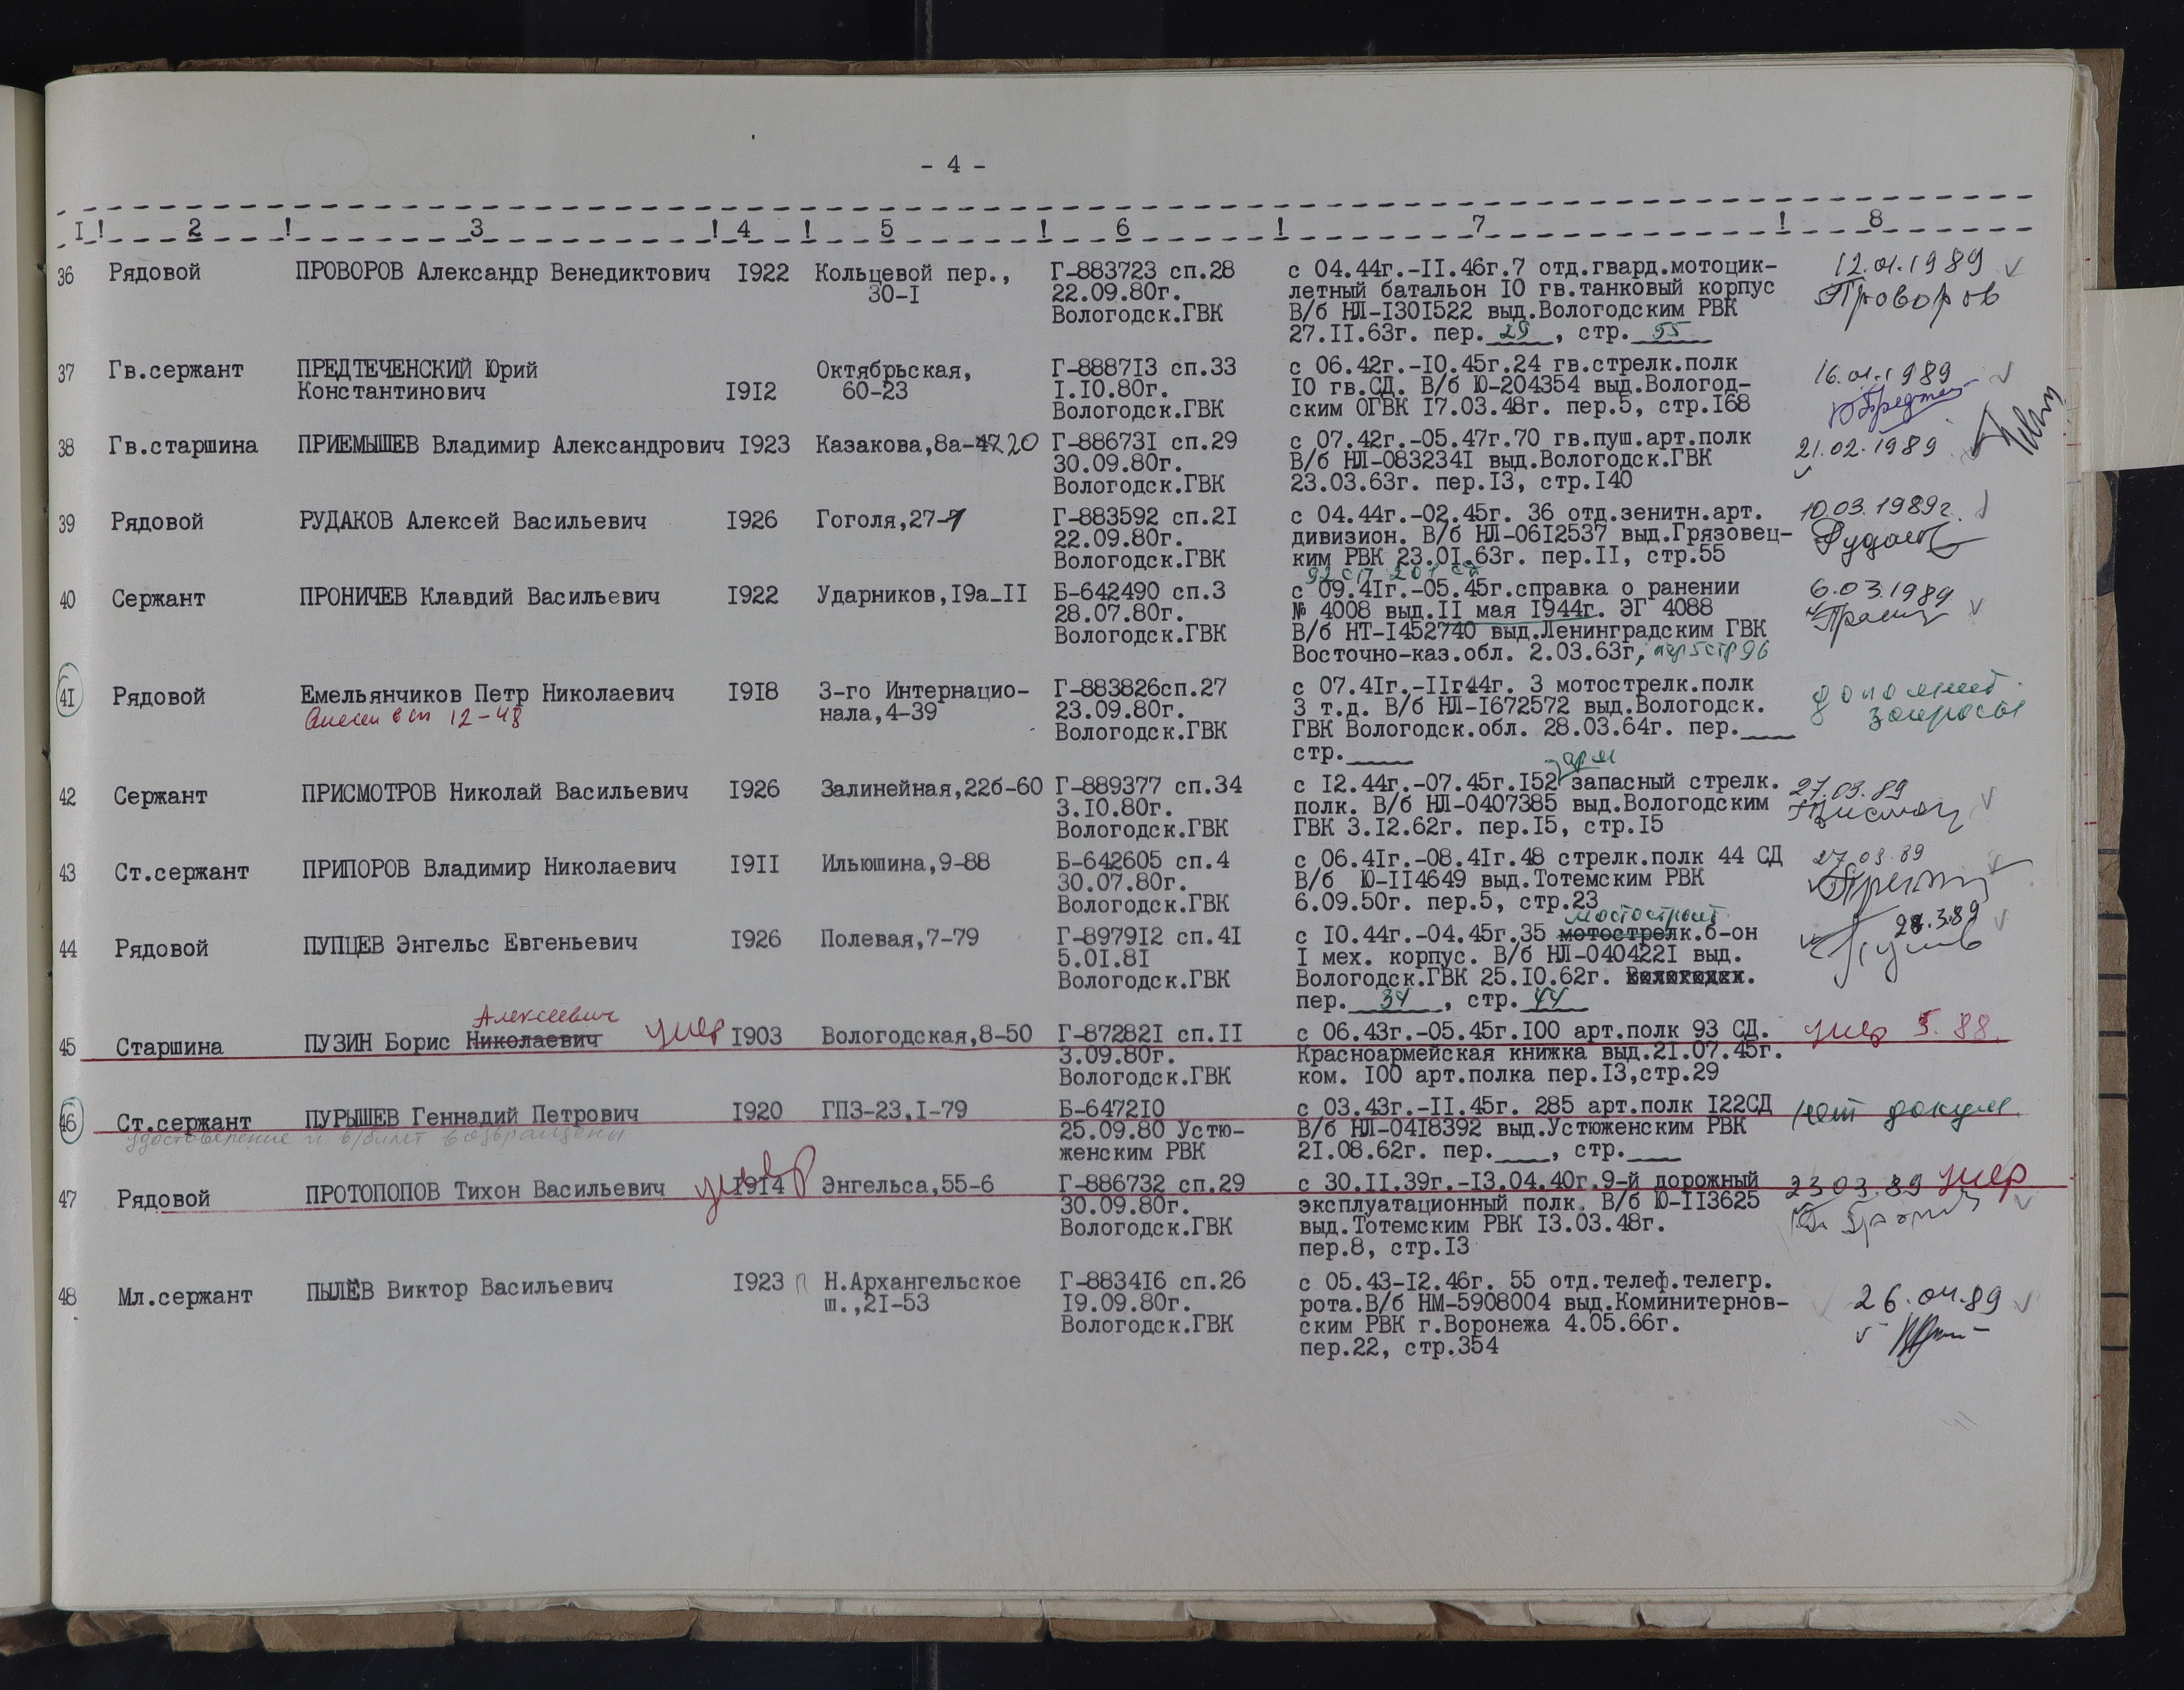 - 4 -
I ! 2 ! 3 ! 4 ! 5 ! 6 ! 7 ! 8
36 Рядовой ПРОВОРОВ Александр Венедиктович I922 Кольцевой пер., Г-883723 сп.28 с 04.44г.-II.46г.7 отд.гвард.мотоцик- 12.01.1989
30-I 22.09.80г. летный батальон IO гв.танковый корпус Проворов
Вологодск.ГВК В/б НЛ-I30I522 выд.Вологодским РВК
27.II.63г. пер. 29 , стр. 55
37 Гв.сержант ПРЕДТЕЧЕНСКИЙ Юрий Октябрьская, Г-8887I3 сп.33 с 06.42г.-IO.45г.24 гв.стрелк.полк 16.01.1989
Константинович I9I2 60-23 I.IO.80г. IO гв.СД. В/б Ю-204354 выд.Вологод-
Вологодск.ГВК ским ОГВК I7.03.48г. пер.5, стр.I68
38 Гв.старшина ПРИЕМЫШЕВ Владимир Александрович I923 Казакова,8а-47 20 Г-88673I сп.29 с 07.42г.-05.47г.70 гв.пуш.арт.полк 21.02.1989
30.09.80г. В/б НЛ-083234I выд.Вологодск.ГВК
Вологодск.ГВК 23.03.63г. пер.I3, стр.I40
39 Рядовой РУДАКОВ Алексей Васильевич I926 Гоголя,27-7 Г-883592 сп.2I с 04.44г.-02.45г. 36 отд.зенитн.арт. 10.03.1989г.
22.09.80г. дивизион. В/б НЛ-06I2537 выд.Грязовец- Рудаков
Вологодск.ГВК ким РВК 23.0I.63г. пер.II, стр.55
92 сп 201 сд
40 Сержант ПРОНИЧЕВ Клавдий Васильевич I922 Ударников,I9а-II Б-642490 сп.3 с 09.4Iг.-05.45г.справка о ранении 6.03.1989
28.07.80г. № 4008 выд.II мая I944г. ЭГ 4088
Вологодск.ГВК В/б НТ-I452740 выд.Ленинградским ГВК
Восточно-каз.обл. 2.03.63г, пер 5 стр 96
4I Рядовой Емельянчиков Петр Николаевич I9I8 3-го Интернацио- Г-883826сп.27 с 07.4Iг.-IIг44г. 3 мотострелк.полк дополнит.
Внесен в сп 12-48 нала,4-39 23.09.80г. 3 т.д. В/б НЛ-I672572 выд.Вологодск. запросы
Вологодск.ГВК ГВК Вологодск.обл. 28.03.64г. пер.____
стр.____
зап
42 Сержант ПРИСМОТРОВ Николай Васильевич I926 Залинейная,22б-60 Г-889377 сп.34 с I2.44г.-07.45г.I52 запасный стрелк. 27.03.89
3.IO.80г. полк. В/б НЛ-0407385 выд.Вологодским
Вологодск.ГВК ГВК 3.I2.62г. пер.I5, стр.I5
43 Ст.сержант ПРИПОРОВ Владимир Николаевич I9II Ильюшина,9-88 Б-642605 сп.4 с 06.4Iг.-08.4Iг.48 стрелк.полк 44 СД 27.03.89
30.07.80г. В/б Ю-II4649 выд.Тотемским РВК
Вологодск.ГВК 6.09.50г. пер.5, стр.23
мостостроит.
44 Рядовой ПУПЦЕВ Энгельс Евгеньевич I926 Полевая,7-79 Г-8979I2 сп.4I с IO.44г.-04.45г.35 мотострелк.б-он
5.0I.8I I мех. корпус. В/б НЛ-040422I выд.
Вологодск.ГВК Вологодск.ГВК 25.IO.62г.
пер. 34 , стр. 44
Алексеевич
45 Старшина ПУЗИН Борис Николаевич умер I903 Вологодская,8-50 Г-87282I сп.II с 06.43г.-05.45г.IOO арт.полк 93 СД. умер 5.88.
3.09.80г. Красноармейская книжка выд.2I.07.45г.
Вологодск.ГВК ком. IOO арт.полка пер.I3,стр.29
46 Ст.сержант ПУРЫШЕВ Геннадий Петрович I920 ГПЗ-23,I-79 Б-6472IO с 03.43г.-II.45г. 285 арт.полк I22СД нет докум.
удостоверение и в/билет возвращены 25.09.80 Устю- В/б НЛ-04I8392 выд.Устюженским РВК
женским РВК 2I.08.62г. пер.____, стр.____
47 Рядовой ПРОТОПОПОВ Тихон Васильевич умер I9I4 Энгельса,55-6 Г-886732 сп.29 с 30.II.39г.-I3.04.40г.9-й дорожный 23.03.89 умер
30.09.80г. эксплуатационный полк. В/б Ю-II3625
Вологодск.ГВК выд.Тотемским РВК I3.03.48г.
пер.8, стр.I3
48 Мл.сержант ПЫЛЁВ Виктор Васильевич I923 П Н.Архангельское Г-8834I6 сп.26 с 05.43-I2.46г. 55 отд.телеф.телегр. 26.04.89
ш.,2I-53 I9.09.80г. рота.В/б НМ-5908004 выд.Коминитернов-
Вологодск.ГВК ским РВК г.Воронежа 4.05.66г.
пер.22, стр.354